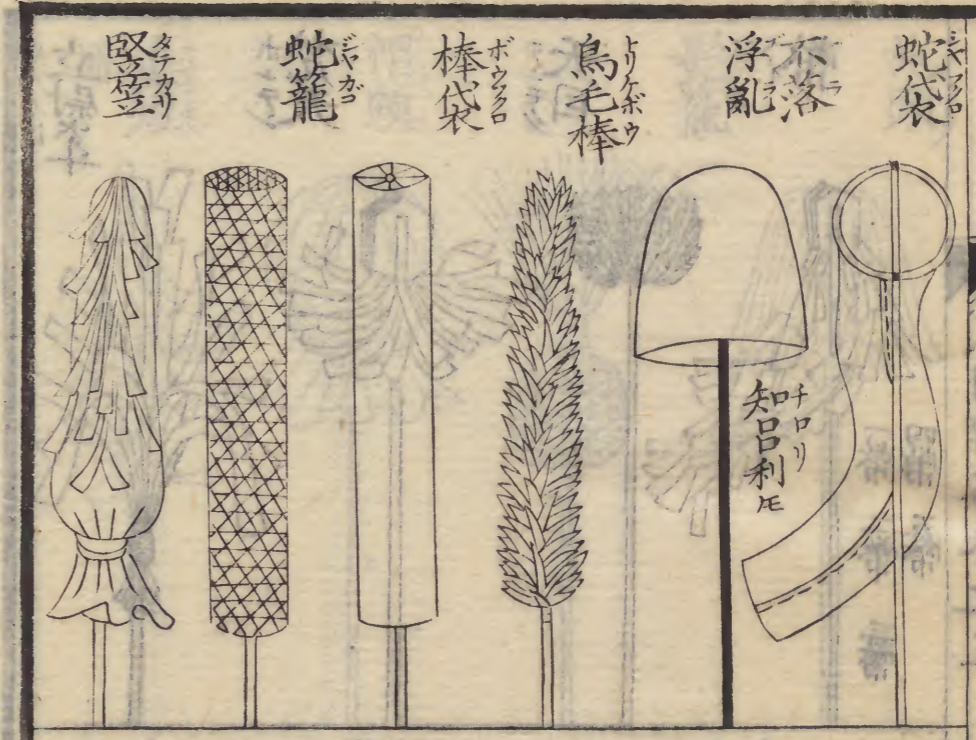 蛇袋
ジャブクロ
不落
浮亂
フラ
知呂利
チロリ
鳥毛棒
トリケボウ
棒袋
ボウフクロ
蛇籠
ジャカゴ
竪笠
タテカサ